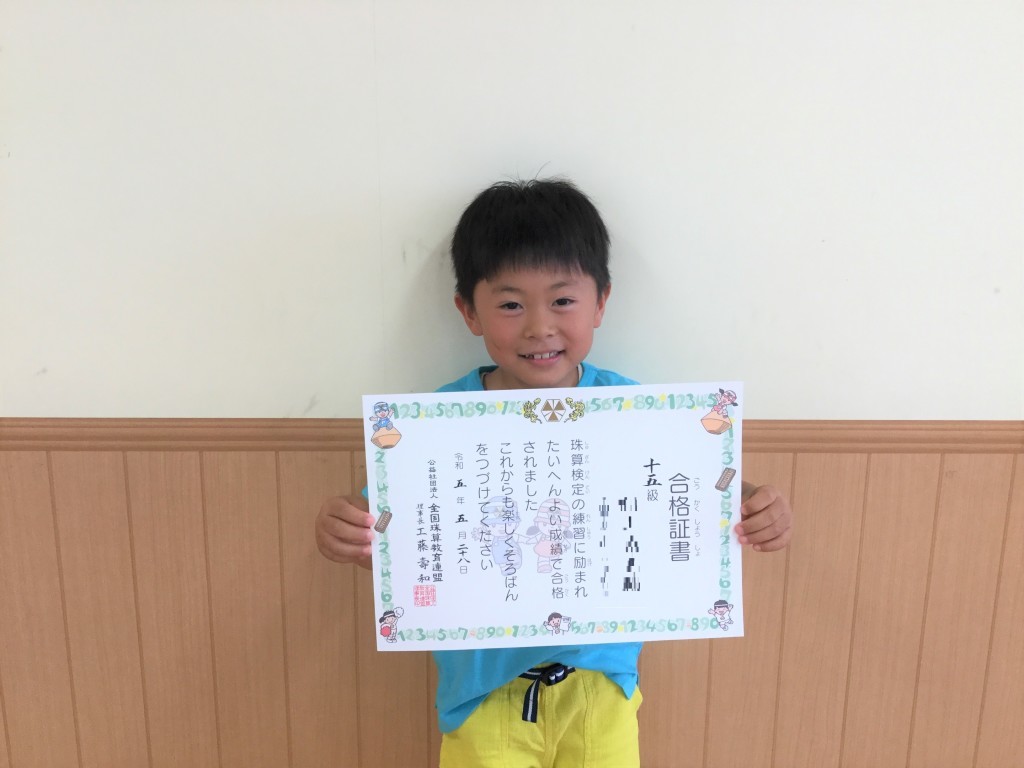 合格証書
ごう かく しょう しょ
十五級
珠算検定の練習に励まれ
たいへんよい成績で合格
されました
これからも楽しくそろばん
をつづけてください
令和 五 年 五 月 二十八日
公益社団法人 全国珠算教育連盟
理事長 工藤壽和